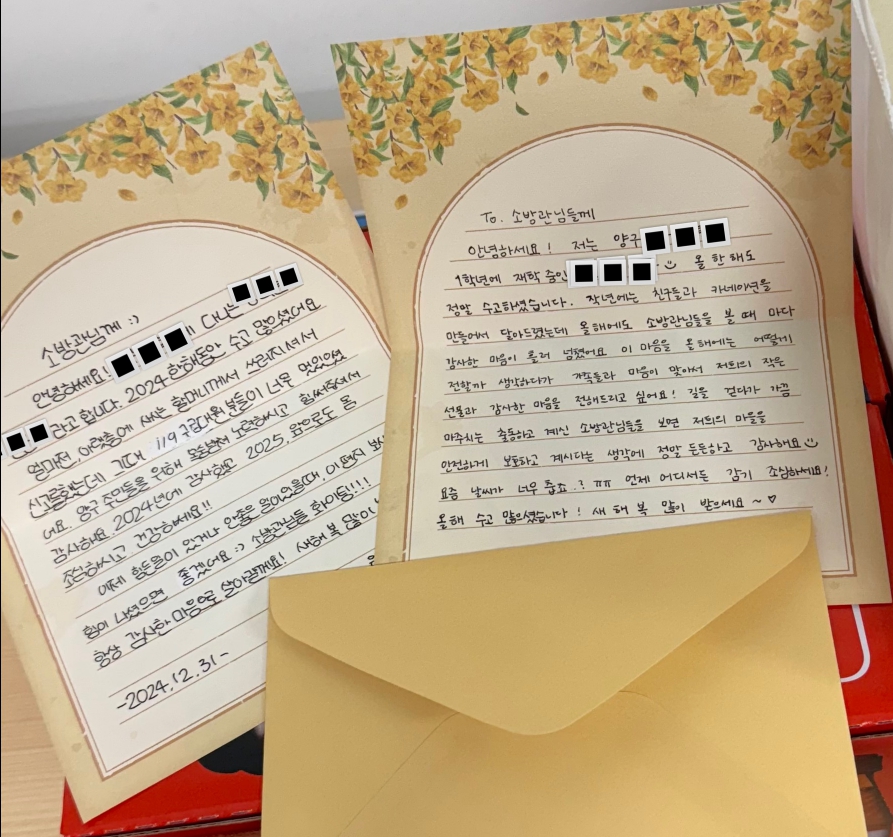 소방관님께 :)
안녕하세요! !! 다니는
라고 합니다. 2024 한해동안 수고 많으셨어요
얼마전, 아랫층에 사는 할머니께서 쓰러지셔서
신고를했는데 그때 119구급대원분들이 너무 멋있었
어요. 양구 주민들을 위해 노력하시고 힘써주셔서
감사해요. 2024년에 감사했고 2025, 앞으로도 몸
조심하시고 건강하세요!!
이제 힘든일이 있거나 웃음을 잃어을때, 이 편지 보시
힘이 나셨으면 좋겠어요 :) 소방관님들 화이팅!!!
항상 감사한 마음으로 살아갈게요! 새해 복 많이
-2024.12.31-
To. 소방관님들께
안녕하세요! 저는 양구
1학년에 재학 중인 . 올 한해도
정말 수고하셨습니다. 작년에는 친구들과 카네이션을
만들어서 달아드렸는데 올해에도 소방관님들을 볼 때 마다
감사한 마음이 흘러 넘쳤어요 이 마음을 올해에는 어떻게
전할까 생각하다가 가족들과 마음이 맞아서 저희의 작은
선물과 감사한 마음을 전해드리고 싶어요! 길을 걷다가 가끔
마주치는 출동하고 계신 소방관님들을 보면 저희의 마을을
안전하게 보호하고 계시다는 생각에 정말 든든하고 감사해요
요즘 날씨가 너무 춥죠..? ㅠㅠ 언제 어디서든 감기 조심하세요!
올해 수고 많으셨습니다! 새해 복 많이 받으세요~♡